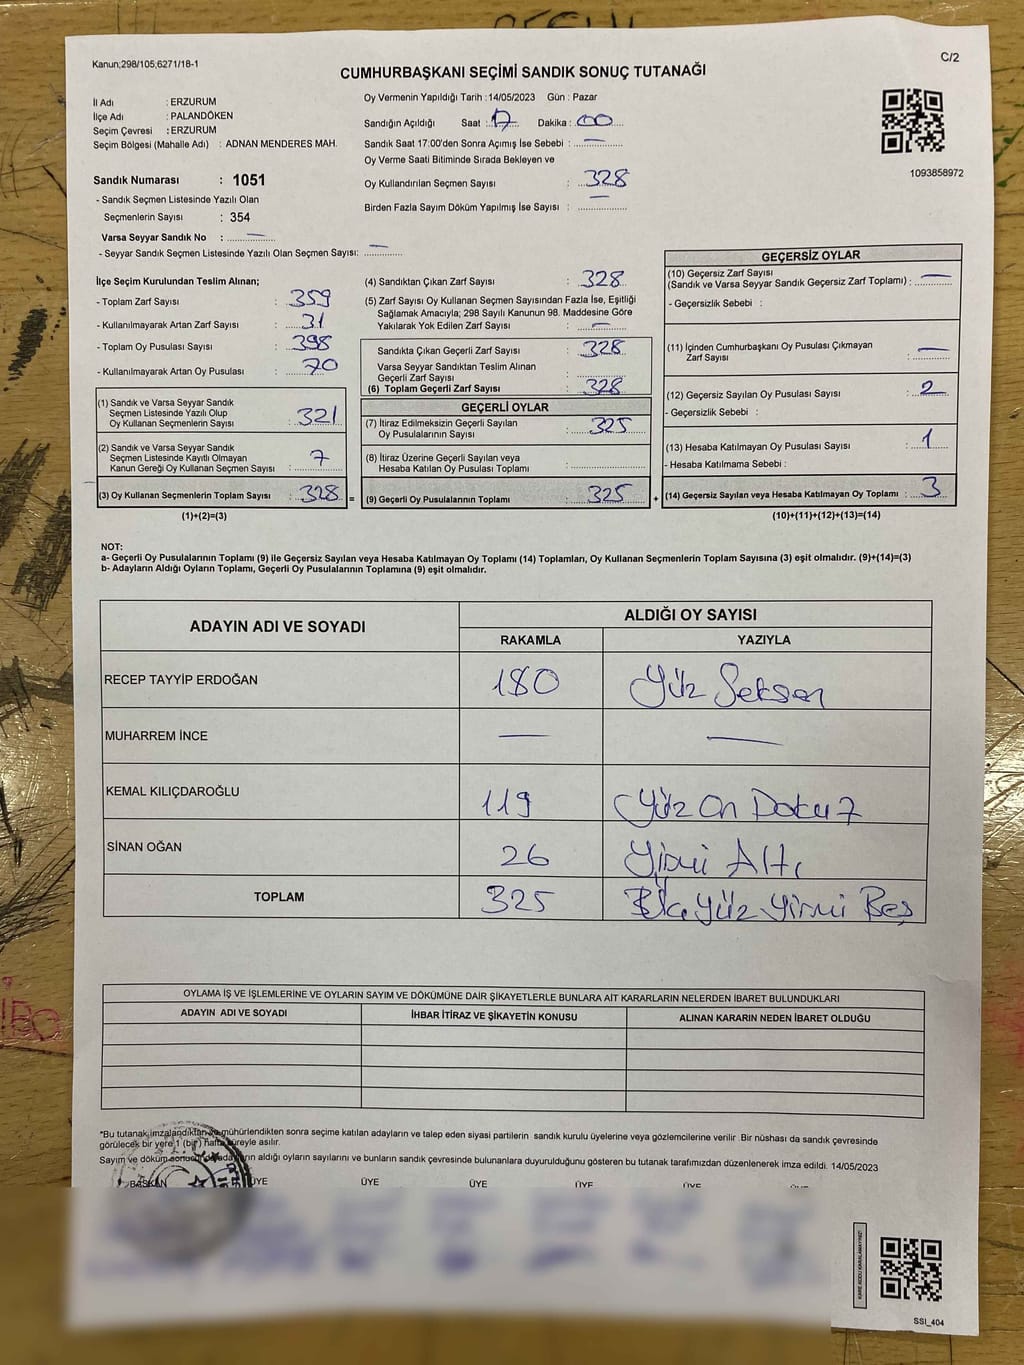 Kanun;298/105;6271/18-1
C/2
CUMHURBAŞKANI SEÇİMİ SANDIK SONUÇ TUTANAĞI
İl Adı : ERZURUM
İlçe Adı : PALANDÖKEN
Seçim Çevresi : ERZURUM
Seçim Bölgesi (Mahalle Adı) : ADNAN MENDERES MAH.
Sandık Numarası : 1051
- Sandık Seçmen Listesinde Yazılı Olan
Seçmenlerin Sayısı : 354
Varsa Seyyar Sandık No : —
- Seyyar Sandık Seçmen Listesinde Yazılı Olan Seçmen Sayısı: —
Oy Vermenin Yapıldığı Tarih :14/05/2023 Gün : Pazar
Sandığın Açıldığı Saat : 17 Dakika : 00
Sandık Saat 17:00'den Sonra Açımış İse Sebebi : —
Oy Verme Saati Bitiminde Sırada Bekleyen ve
Oy Kullandırılan Seçmen Sayısı : 328
Birden Fazla Sayım Döküm Yapılmış İse Sayısı : —
1093858972
İlçe Seçim Kurulundan Teslim Alınan;
- Toplam Zarf Sayısı : 359
- Kullanılmayarak Artan Zarf Sayısı : 31
- Toplam Oy Pusulası Sayısı : 398
- Kullanılmayarak Artan Oy Pusulası : 70
(1) Sandık ve Varsa Seyyar Sandık
Seçmen Listesinde Yazılı Olup
Oy Kullanan Seçmenlerin Sayısı : 321
(2) Sandık ve Varsa Seyyar Sandık
Seçmen Listesinde Kayıtlı Olmayan
Kanun Gereği Oy Kullanan Seçmen Sayısı : 7
(3) Oy Kullanan Seçmenlerin Toplam Sayısı : 328 =
(1)+(2)=(3)
(4) Sandıktan Çıkan Zarf Sayısı : 328
(5) Zarf Sayısı Oy Kullanan Seçmen Sayısından Fazla İse, Eşitliği
Sağlamak Amacıyla; 298 Sayılı Kanunun 98. Maddesine Göre
Yakılarak Yok Edilen Zarf Sayısı : —
Sandıkta Çıkan Geçerli Zarf Sayısı : 328
Varsa Seyyar Sandıktan Teslim Alınan
Geçerli Zarf Sayısı :
(6) Toplam Geçerli Zarf Sayısı : 328
GEÇERLİ OYLAR
(7) İtiraz Edilmeksizin Geçerli Sayılan
Oy Pusulalarının Sayısı : 325
(8) İtiraz Üzerine Geçerli Sayılan veya
Hesaba Katılan Oy Pusulası Toplamı :
(9) Geçerli Oy Pusulalarının Toplamı : 325 +
GEÇERSİZ OYLAR
(10) Geçersiz Zarf Sayısı
(Sandık ve Varsa Seyyar Sandık Geçersiz Zarf Toplamı) : —
- Geçersizlik Sebebi :
(11) İçinden Cumhurbaşkanı Oy Pusulası Çıkmayan
Zarf Sayısı : —
(12) Geçersiz Sayılan Oy Pusulası Sayısı : 2
- Geçersizlik Sebebi :
(13) Hesaba Katılmayan Oy Pusulası Sayısı : 1
- Hesaba Katılmama Sebebi :
(14) Geçersiz Sayılan veya Hesaba Katılmayan Oy Toplamı : 3
(10)+(11)+(12)+(13)=(14)
NOT:
a- Geçerli Oy Pusulalarının Toplamı (9) ile Geçersiz Sayılan veya Hesaba Katılmayan Oy Toplamı (14) Toplamları, Oy Kullanan Seçmenlerin Toplam Sayısına (3) eşit olmalıdır. (9)+(14)=(3)
b- Adayların Aldığı Oyların Toplamı, Geçerli Oy Pusulalarının Toplamına (9) eşit olmalıdır.
ADAYIN ADI VE SOYADI ALDIĞI OY SAYISI
RAKAMLA YAZIYLA
RECEP TAYYİP ERDOĞAN 180 Yüz Seksen
MUHARREM İNCE — —
KEMAL KILIÇDAROĞLU 119 Yüz On Dokuz
SİNAN OĞAN 26 Yirmi Altı
TOPLAM 325 Üç Yüz Yirmi Beş
OYLAMA İŞ VE İŞLEMLERİNE VE OYLARIN SAYIM VE DÖKÜMÜNE DAİR ŞİKAYETLERLE BUNLARA AİT KARARLARIN NELERDEN İBARET BULUNDUKLARI
ADAYIN ADI VE SOYADI İHBAR İTİRAZ VE ŞİKAYETİN KONUSU ALINAN KARARIN NEDEN İBARET OLDUĞU
*Bu tutanak imzalandıktan ve mühürlendikten sonra seçime katılan adayların ve talep eden siyasi partilerin sandık kurulu üyelerine veya gözlemcilerine verilir .Bir nüshası da sandık çevresinde
görülecek bir yere 1 (bir) hafta süreyle asılır.
Sayım ve döküm sonucunda adayların aldığı oyların sayılarını ve bunların sandık çevresinde bulunanlara duyurulduğunu gösteren bu tutanak tarafımızdan düzenlenerek imza edildi. 14/05/2023
BAŞKAN ÜYE ÜYE ÜYE ÜYE ÜYE
KARE KODU KARALAMAYINIZ!
SSI_404
İBO